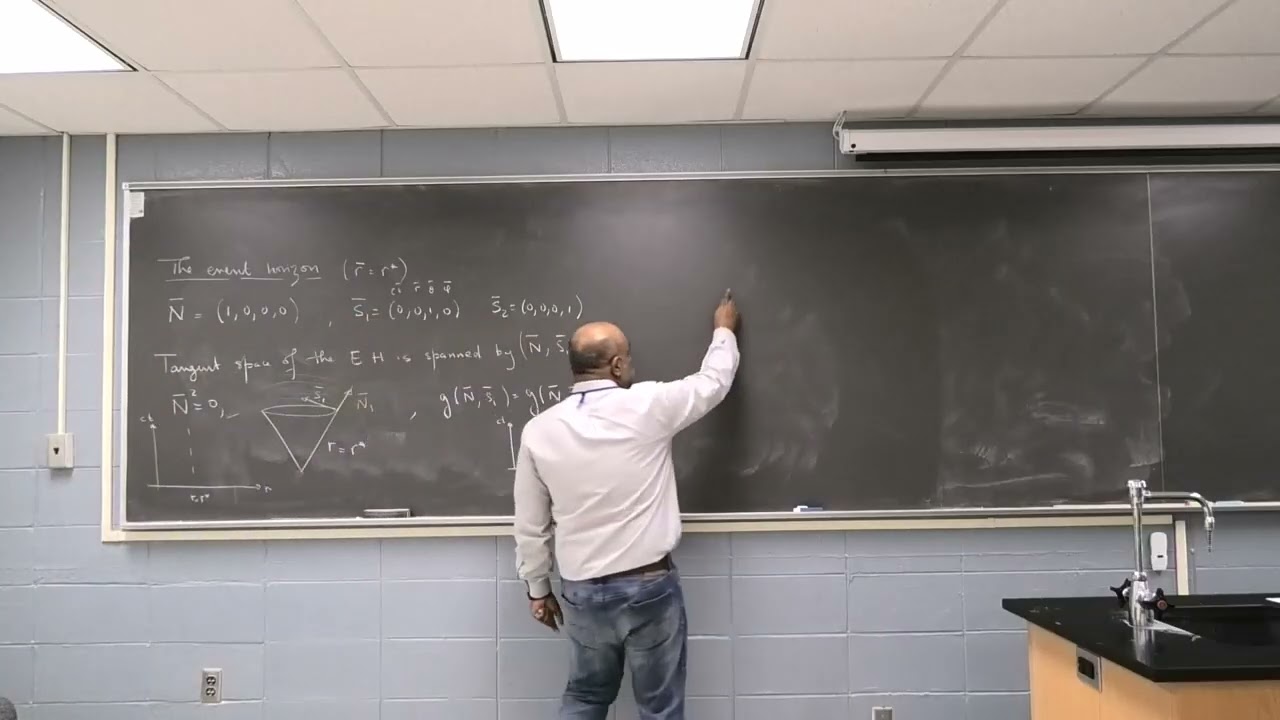 The event horizon (r̄ = r*)
ct̄ r̄ θ̄ φ̄
N̄ = (1,0,0,0) , S̄₁ = (0,0,1,0) S̄₂ = (0,0,0,1)
Tangent space of the E H is spanned by (N̄, S̄
N̄² = 0, , g(N̄, S̄₁) = g(N̄
S̄₁ N̄₁
r = r*
ct r
r=r*
ct